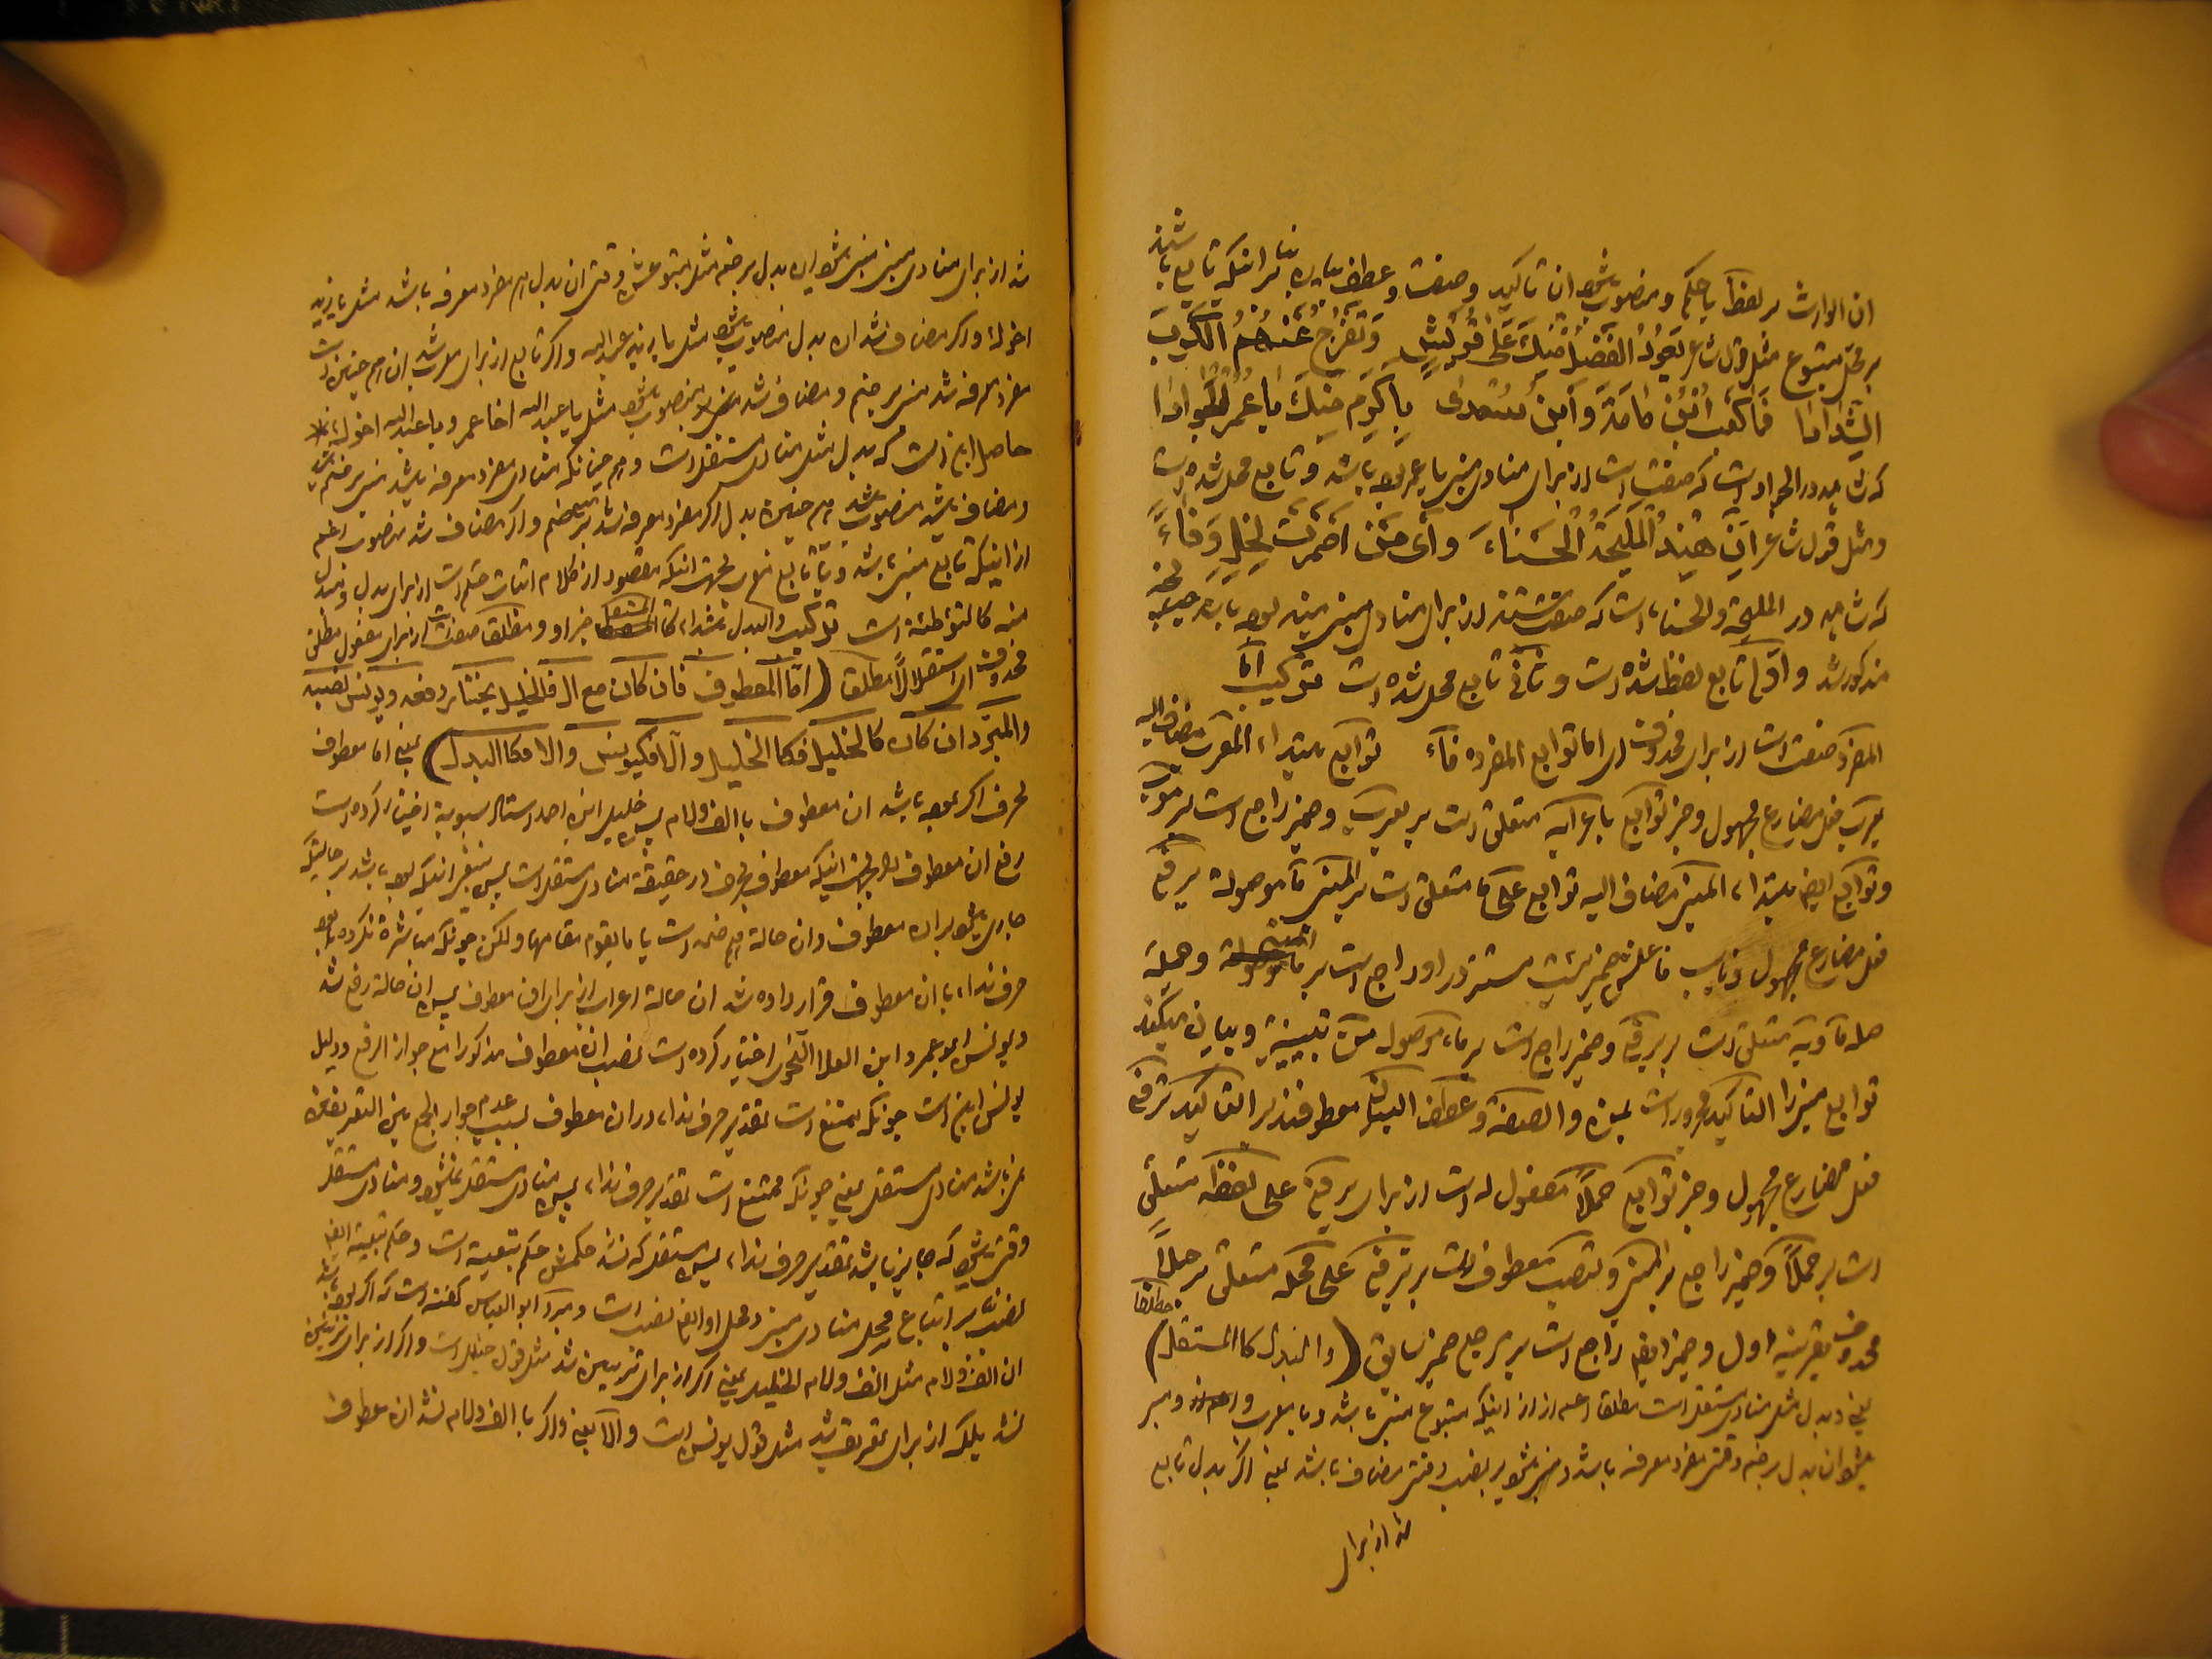 ان الوارث بر لفظ یا حکم و منصوب شود ان تاکید و صفت و عطف بیان بنا بر اینکه تابع باشند
بر محل متبوع مثل قول شاعر یَعُودُ الفَضْلُ مِنْکَ عَلی قُرَیْشٍ وَتَفْرُجُ عَنْهُمُ الْکُرَبَ
الشِّدادَا فَمَا کَعْبُ ابْنُ مَامَةَ وَابْنُ سُعْدیٰ بِاَکْرَمَ مِنْکَ یَا عُمَرُ الجَوادَا
که شاهد در الجواد است که صفت است از برای منادی مبنی یا عمر بوده باشد و تابع محل شده است
و مثل قول شاعر اِنَّ هِنْدُ المَلِیحَةُ الحَسْنَاءَ وَأْیَ مَنْ اَضْمَرَتْ لِخِلٍّ وَفَاءً
که شاهد در الملیحة و الحسناء است که صفتند از برای منادی مبنی هند بوده باشد
مذکور شد و اول تابع لفظ شده است و ثانی تابع محل شده است ترکیب امّا
المفرد صفت است از برای محذوف ای اما توابع المفرده فاء توابع مبتداء المعرب مضاف الیه
یعرب فعل مضارع مجهول و خبر توابع باعرابه متعلق است بر یعرب و ضمیر راجع است بر معرب
و توابع ایضا مبتداء المبنی مضاف الیه توابع علی ما متعلق است بر المبنی ما موصوله یرفع
فعل مضارع مجهول و نایب فاعلش ضمیریست مستتر در او راجع است بر المبنی و جمله
صله ما و به متعلق است بر یرفع و ضمیر راجع است بر ماء موصول من تبیینیه و بیان میکند
توابع مبنی را التاکید مجرور است بمن و الصفة و عطف البیان معطوفند بر التاکید ترفع
فعل مضارع مجهول و خبر توابع حملاً مفعول له است از برای یرفع علی لفظه متعلق
است بر حملاً و ضمیر راجع بر المبنی و تنصب معطوف است بر ترفع علی محله متعلق بر حملاً
محذوف بقرینه اول و ضمیر ایضا راجع است بر مرجع ضمیر سابق (والبدل کالمستقل) مطلقا
یعنی و بدل مثل منادی مستقل است مطلقا اعم از اینکه متبوع مبنی باشد و یا معرب و مبنی
میشود ان بدل بر ضم وقتی مفرد معرفه باشد و منصوب شود بر نصب وقتی مضاف باشد یعنی اگر بدل تابع
شد از برای
شد از برای منادی مبنی مبنی میشود این بدل بر ضم مثل متبوعش وقتی ان بدل هم مفرد معرفه باشد مثل یا زید
اخوک و اگر مضاف شد ان بدل منصوب میشود مثل یا زید عبد الله و اگر تابع از برای معرب شد ان هم چنین است
مفرد معرفه شد مبنی بر ضم و مضاف شد منصوب میشود مثل یا عبد الله اخا عمرو یا عبد الله اخوک *
حاصل این است که بدل مثل منادی مستقل است و هم چنانکه منادی مفرد معرفه باشد مبنی بر ضم است
و مضاف باشد منصوب میشود هم چنین بدل اگر مفرد معرفه شد بر ضم و اگر مضاف شد منصوب اعم
از اینکه تابع مبنی باشد و یا تابع معرب بجهت اینکه مقصود از کلام اثبات حکم است از برای بدل و مبدل
منه کالتوطئة است ترکیب والبدل مبتداء کالمستقل خبر او و مطلقا صفت است از برای مفعول مطلق
محذوف ای استقلالاً مطلقا (امّا المعطوف فان کان مع ال فالخلیل یختار رفعه ویونس نصبه
والمبرّد ان کان کالخلیل فکالخلیل والا فکیونس والا فکالبدل) یعنی اما معطوف
بحرف اگر بوده باشد ان معطوف با الف ولام پس خلیل ابن احمد استاد سیبویه اختیار کرده است
رفع ان معطوف را بجهت اینکه معطوف بحرف در حقیقة منادی مستقل است پس سزاوار اینکه بوده باشد بر حالتیکه
جاری میشود بر ان معطوف و ان حالة هم ضم است یا ما یقوم مقامها ولکن چونکه مباشرة نکرده بوده
حرف نداء با ان معطوف قرار داده شد ان حالة اعراب از برای ان معطوف پس ان حالة رفع شد
و یونس و ابو عمرو ابن العلا النحوی اختیار کرده است نصب ان معطوف مذکور را مع جواز الرفع و دلیل
یونس این است چونکه ممتنع است تقدیر حرف نداء در ان معطوف بسبب عدم جواز الجمع بین التعریفین
نمیباشد منادی مستقل یعنی چونکه ممتنع است تقدیر حرف نداء پس منادی مستقل نمیشود و منادی مستقل
وقتی میشود که جایز باشد تقدیر حرف نداء پس مستقل که نشد حکمش حکم تبعیة است و حکم تبعیة ایضا
نصب است بر اتباع محل منادی مبنی و محل او ایضا نصب است و مبرد ابو العباس گفته است که اگر بوده باشد
ان الف ولام مثل الف ولام الخلیل یعنی اگر از برای تزیین شد مثل قول خلیل است و اگر از برای تزیین
نشد بلکه از برای تعریف شد مثل قول یونس است والا یعنی و اگر با الف ولام نشد ان معطوف